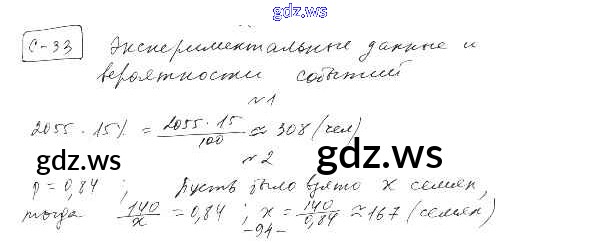 gdz.ws
С-33 Экспериментальные данные и
вероятности событий
№1
2055 · 15% = 2055 · 15 / 100 ≈ 308 (чел)
gdz.ws
gdz.ws
№2
p = 0,84 ; Пусть было взято x семян,
тогда 140 / x = 0,84 ; x = 140 / 0,84 ≈ 167 (семян)
-94-